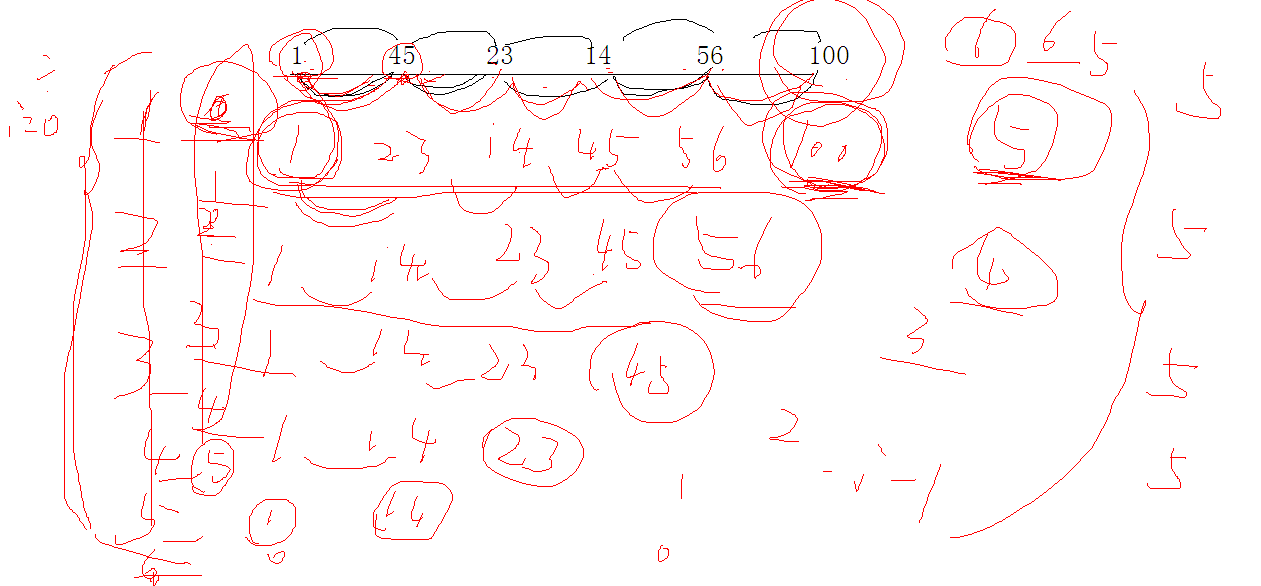 1 45 23 14 56 100 6 6 5
5
i=0 1 0 1 23 14 45 56 100 5
1
2 2 1 14 23 45 56 4 5
3 3 1 14 23 45 3 5
4
4 5 1 14 23 2 5
5 1 14 1 -i-1
6 0 0